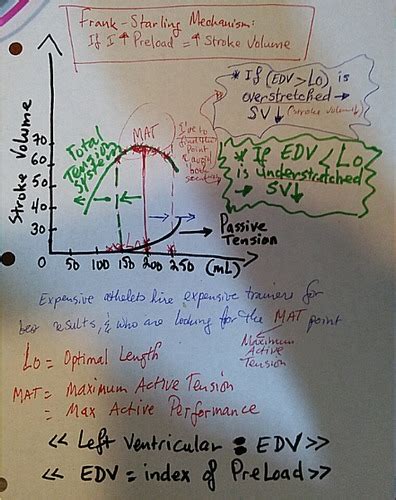 Frank-Starling Mechanism:
If I ↑ Preload = ↑ Stroke Volume
* If (EDV > Lo) is
overstretched →
SV↓ (stroke volume)
* If EDV < Lo
is understretched
→ SV↓
MAT
Total
Tension
Systole
point
Stroke Volume
70
60
50
40
30
0
50
100
150
200
250
(mL)
Lo
Passive
Tension
Expensive athelets hire expensive trainers for
best results, & who are looking for the MAT point
Maximum
Active
Tension
Lo = Optimal Length
MAT = Maximum Active Tension
= Max Active Performance
<< Left Ventricular : EDV >>
<< EDV = index of PreLoad >>